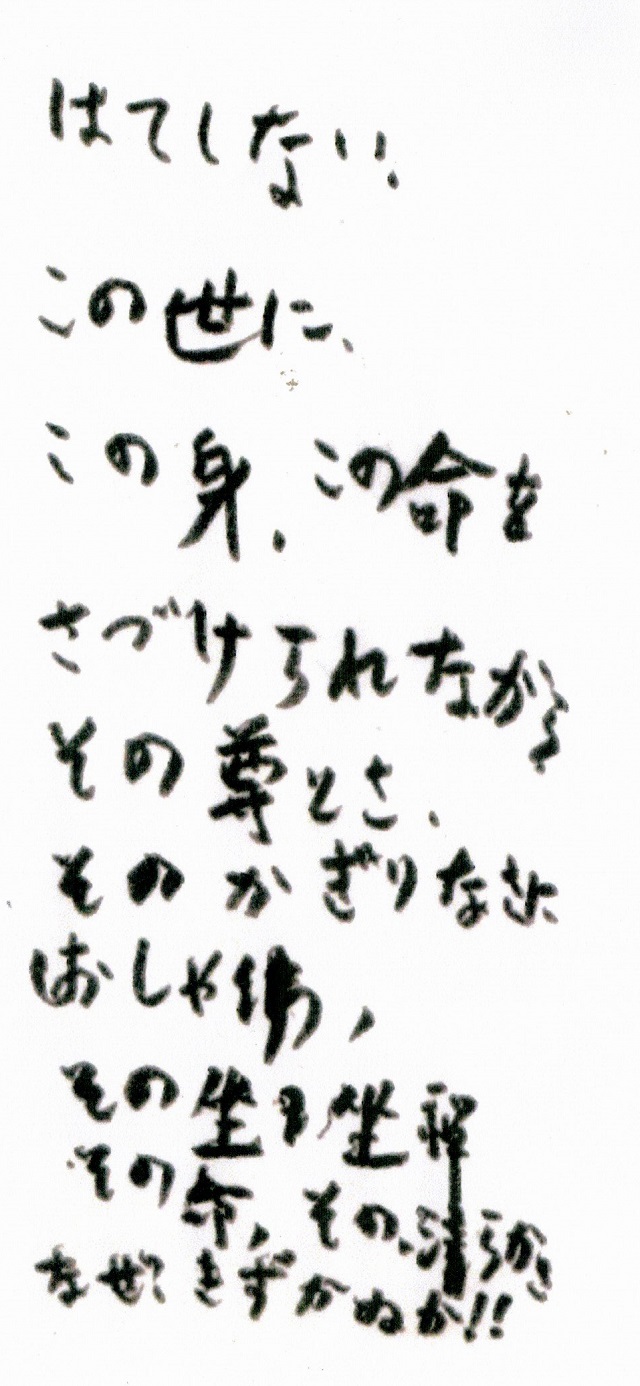 はてしない、
この世に、
この身、この命を
さづけられながら
その尊とさ、
そのかぎりなさに
おしゃ佛、
その坐る坐禅
その命、その、清らかさ
なぜ?きずかぬか!!